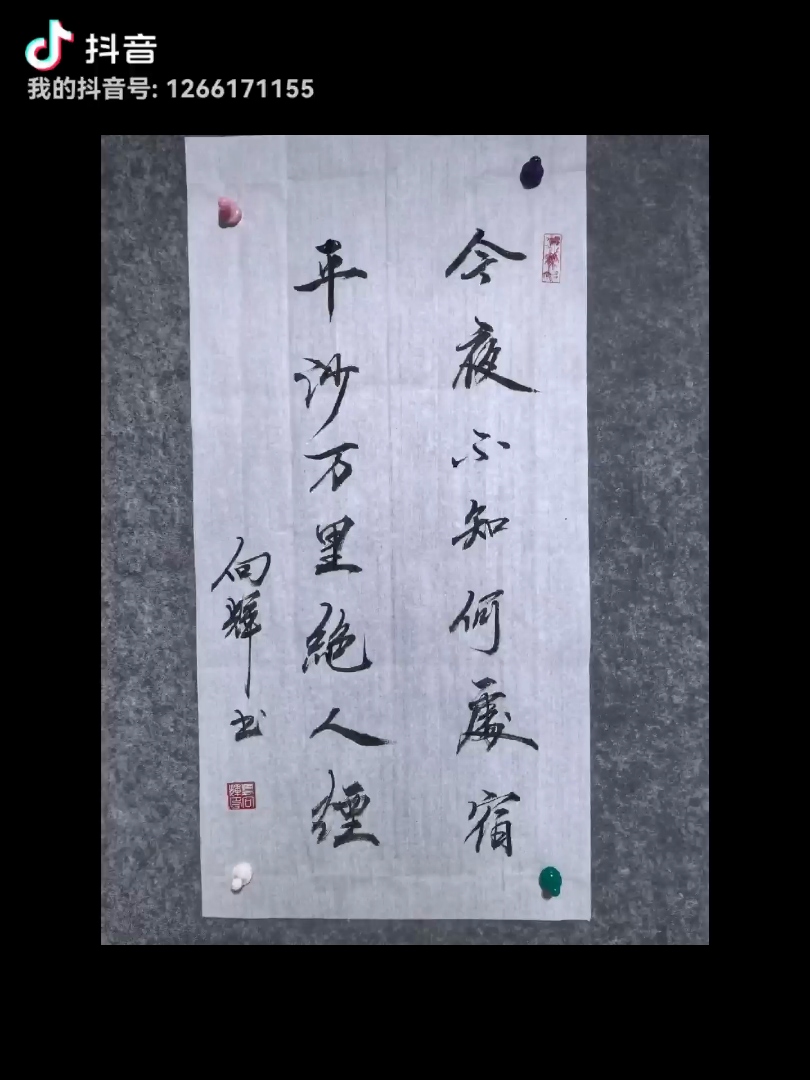 抖音
我的抖音号: 1266171155
今夜不知何處宿
平沙万里絶人煙
向輝书